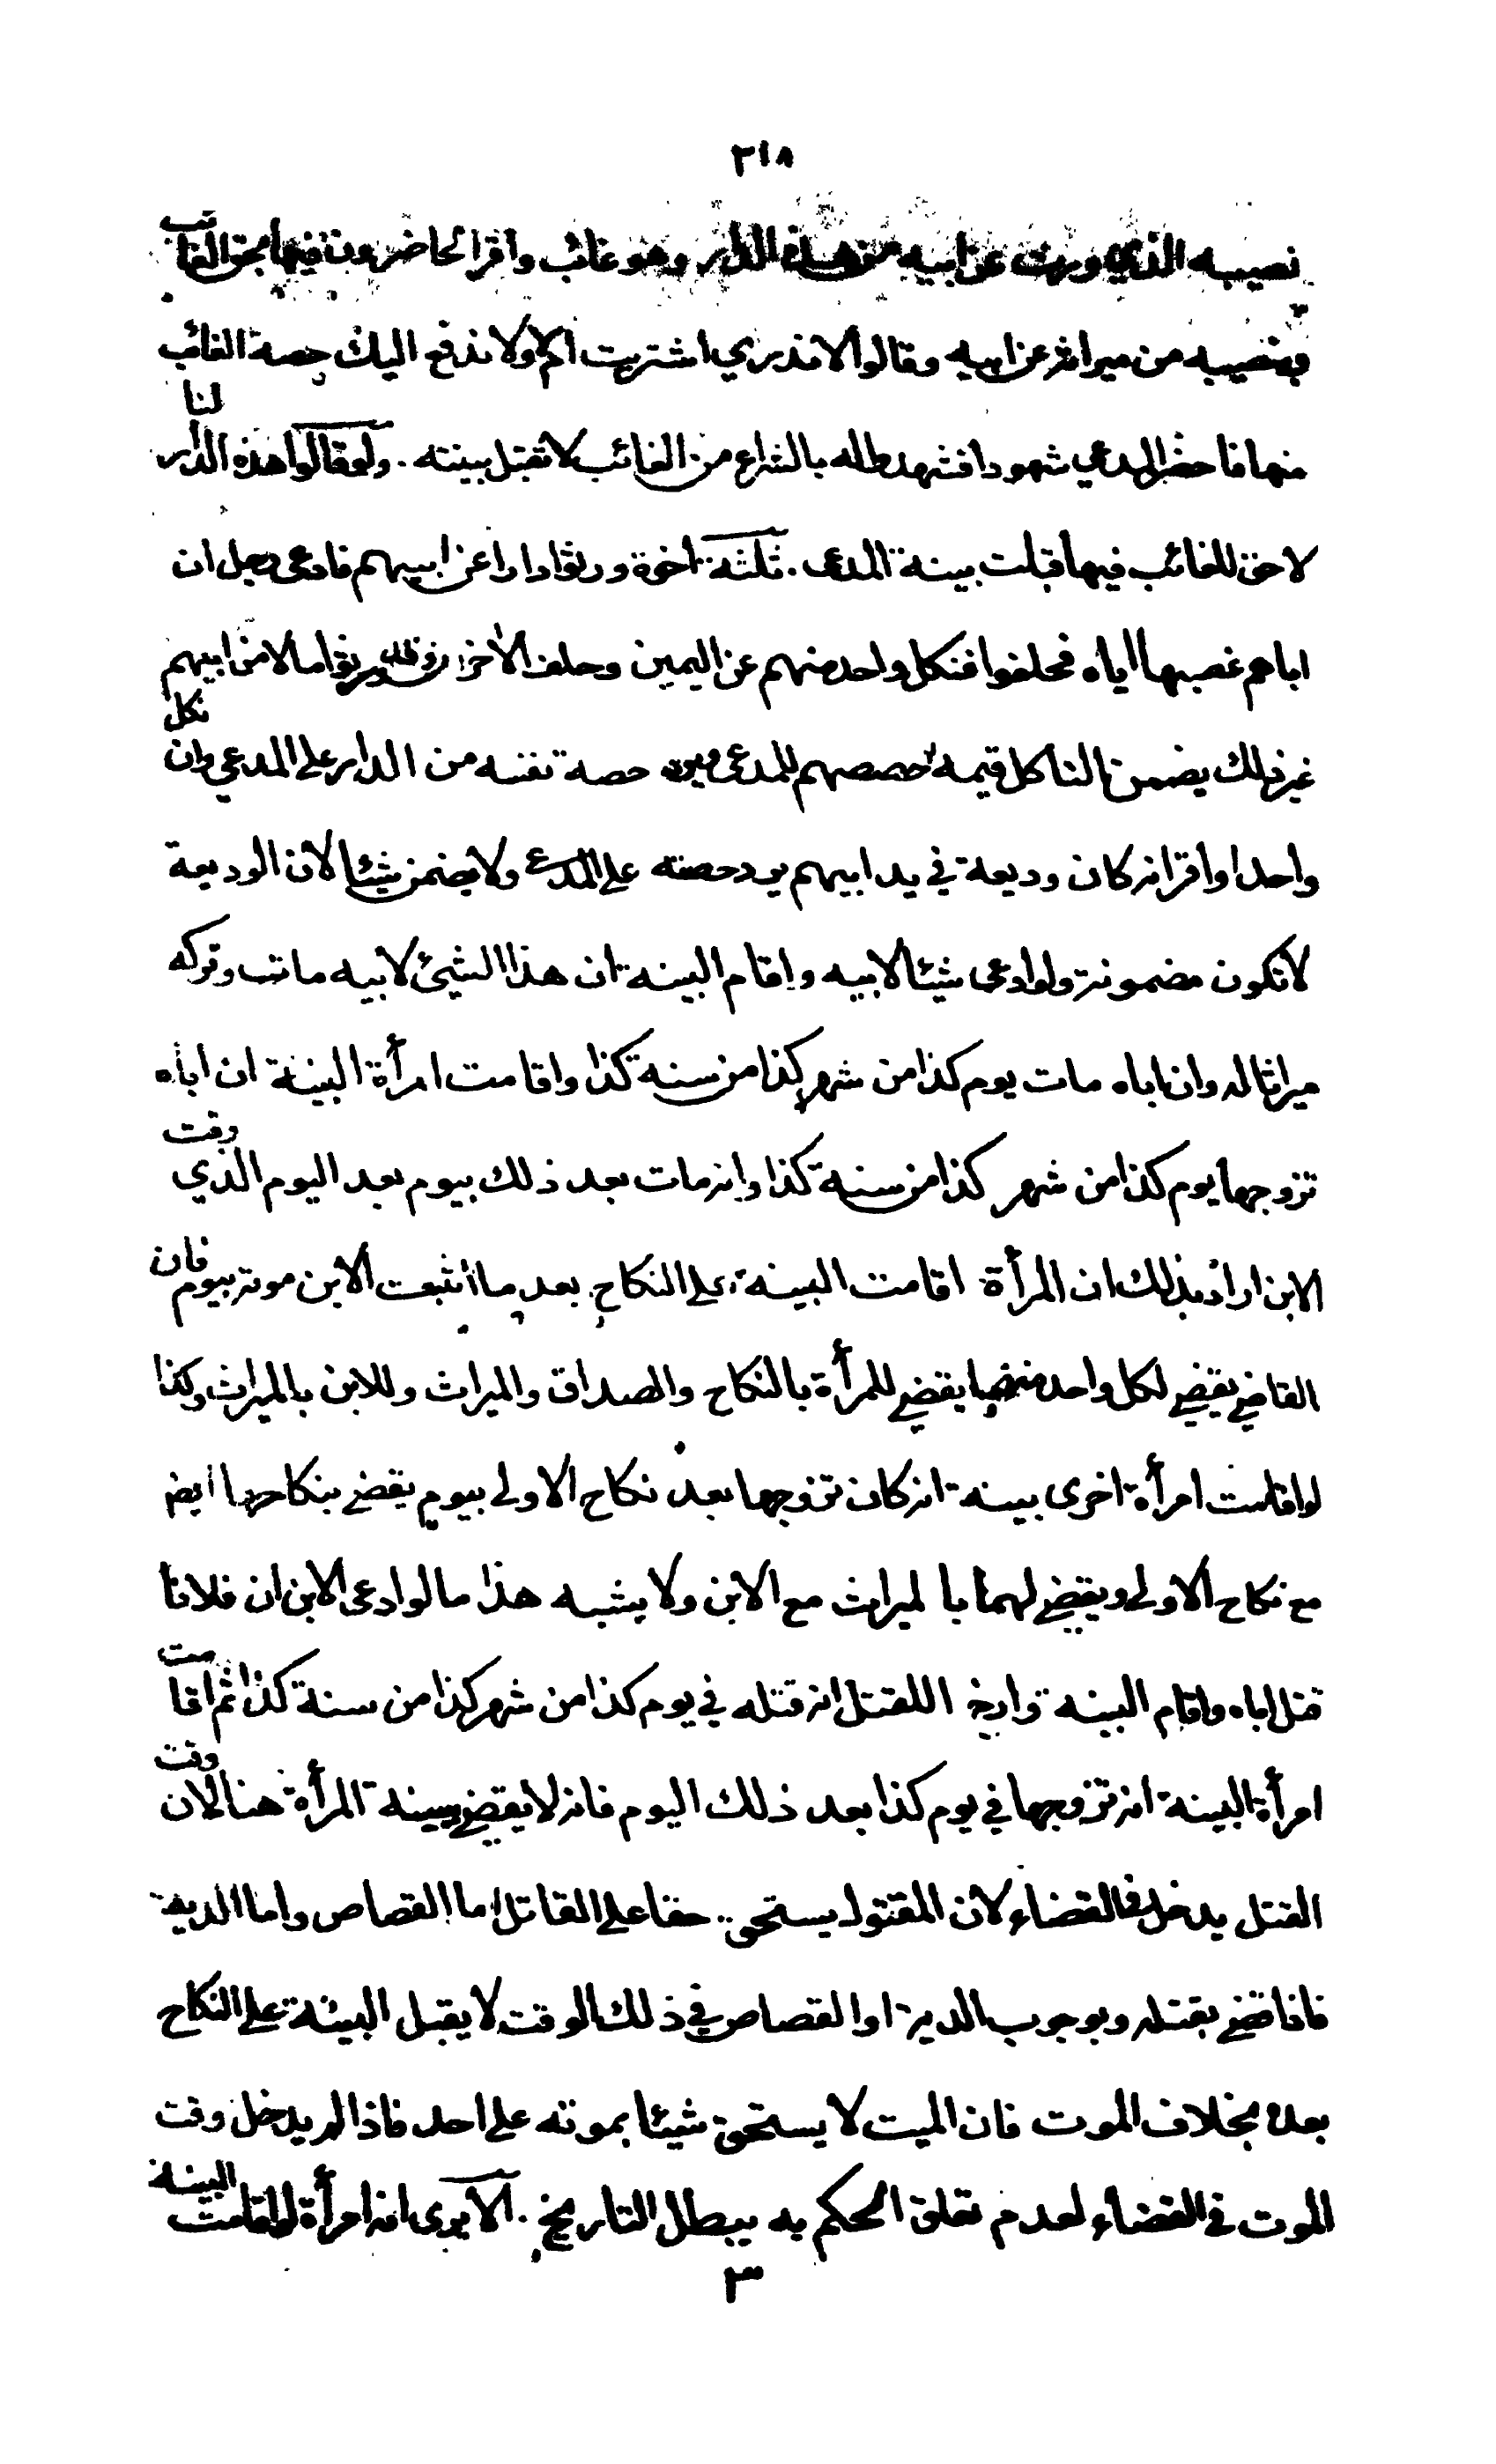 ٣١٨
نصيبه الذي ورث عن ابيه من هذه الدار وهو غائب واقر الحاضرون فيها بحق الغائب
ونصيبه من ميراثه عن ابيه وقالوا لا ندري اشتريت ام لا ولا ندفع اليك حصة الغائب
منها فاحضر المدعي شهودا فشهد له بالشراء من الغائب لا تقبل بينته . ولو قالوا هذه الدار لنا
لا حق للغائب فيها قبلت بينة المدعى . ثلثة اخوة ورثوا دارا عن ابيهم فادعى رجل ان
اباهم غصبها اياه فحلفوا فنكل واحد منهم عن اليمين وحلف الآخران وقد ورثوا مالا من ابيهم
غير ذلك يضمن الناكل قيمة حصصهم للمدعي ويرد حصة نفسه من الدار على المدعي وان نكل
واحد او اقر انه كان وديعة في يد ابيهم يرد حصته على المدعي ولا يضمن شيئا لان الوديعة
لا تكون مضمونة ولو ادعى شيئا لابيه واقام البينة ان هذا الشيئ لابيه مات وتركه
ميراثا له وان اباه مات يوم كذا من شهر كذا من سنة كذا واقامت امرأة البينة ان اباه
تزوجها يوم كذا من شهر كذا من سنة كذا وانه مات بعد ذلك بيوم بعد اليوم الذي وقت
الابن اراد بذلك ان المرأة اقامت البينة على النكاح بعد ما اثبت الابن موته بيوم فان
القاضي يقضي لكل واحد منهما يقضي للمرأة بالنكاح والصداق والميراث وللابن بالميراث وكذا
لو اقامت امرأة اخرى بينة انه كان تزوجها بعد نكاح الاولى بيوم يقضي بنكاحها ايضا
مع نكاح الاولى ويقضي لهما با لميراث مع الابن ولا يشبه هذا ما لو ادعى الابن ان فلانا
قتل اباه واقام البينة وارخ اللقتل انه قتله في يوم كذا من شهر كذا من سنة كذا ثم اقامت
امرأة البينة انه تزوجها في يوم كذا بعد ذلك اليوم فانه لا يقضي ببينة المرأة هنا لان وقت
القتل يدخل في القضاء لان المقتول يستحق حقا على القاتل اما القصاص واما الدية
فاذا قضي بقتله وبوجوب الدية او القصاص في ذلك الوقت لا يقبل البينة على النكاح
بعده بخلاف الموت فان الميت لا يستحق شيئا بموته على احد فاذا لم يدخل وقت
الموت في القضاء لعدم تعلق الحكم به يبطل التاريخ . الا يرى انه امرأة لو اقامت البينة
٣